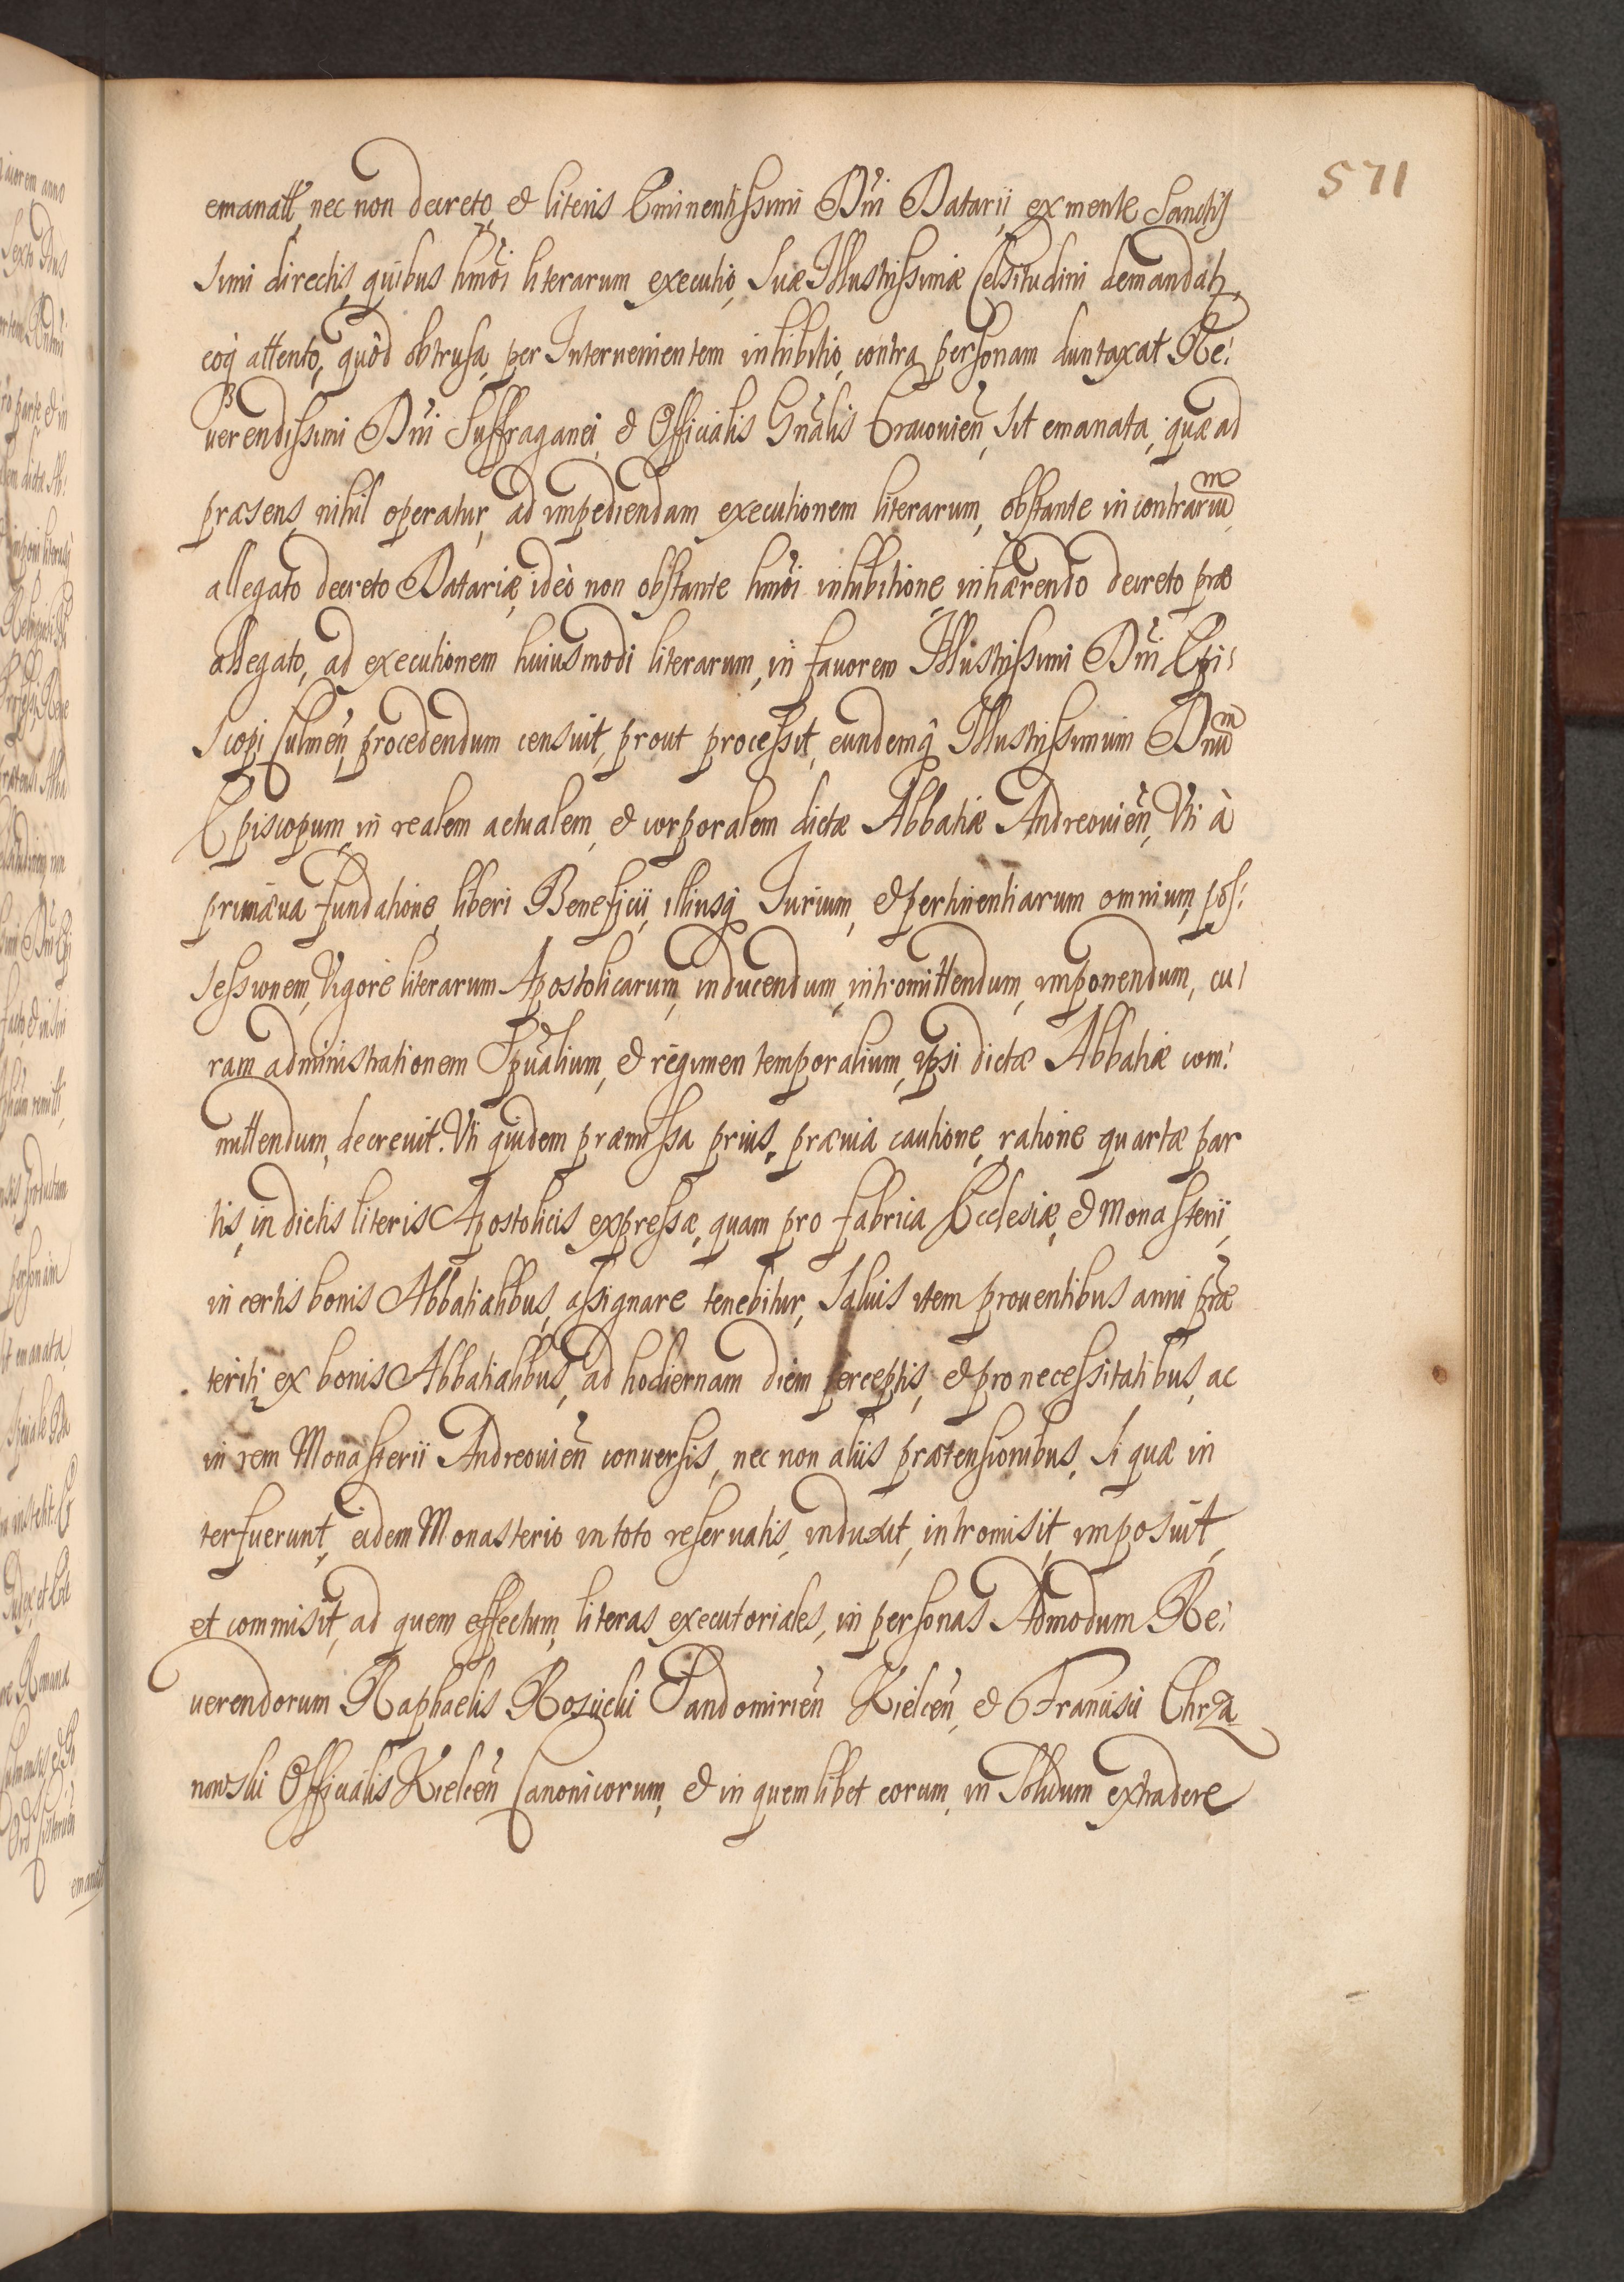 571
emanatt, nec non decreto, et literis Eminentissimi Dñi Datarii, ex mente Sanctis
simi directis, quibus hmõi literarum executio, Suæ Illustrissimæ Celsitudini demandatr,
eoq̃ attento, quôd obtrusa, per Intervenientem inhibitio, contra personam duntaxat Re:
verendissimi Dñi Suffraganei, et Officialis Gñalis Cracovieñ, sit emanata, quæ ad
præsens, nihil operatur, ad impediendam executionem literarum, obstante in contrarium,
allegato decreto Datariæ, ideò non obstante hmõi inhibitione, inhærendo decreto præ
allegato, ad executionem huiusmodi literarum, in favorem Illustrissimi Dñi Epi:
scopi Culmeñ, procedendum censuit, prout processit, eundemq̃ Illustrissimum Dnum
Episcopum, in realem actualem, et corporalem dictæ Abbatiæ Andreovieñ, Uti à
primæva fundatione, liberi Beneficii, illiusq̃ Jurium, et pertinentiarum omnium, pos:
sessionem, Vigore literarum Apostolicarum, inducendum, intromittendum, imponendum, cu:
ram administrationem Spũalium, et regimen temporalium, ipsi dictæ Abbatiæ com:
mittendum, decrevit. Uti quidem præmissa prius, prævia cautione, ratione quartæ par
tis, in dictis literis Apostolicis expressæ, quam pro fabrica Ecclesiæ, et Monasterii,
in certis bonis Abbatialibus, assignare tenebitur, Salvis item proventibus anni præ
teriti, ex bonis Abbatialibus, ad hodiernam diem perceptis, et pro necessitatibus, ac
in rem Monasterii Andreovieñ conversis, nec non aliis prætensionibus, si quæ in
terfuerunt, eidem Monasterio in toto reservatis, induxit, intromisit, imposuit,
et commisit, ad quem effectum, literas executoriales, in personas Admodum Re:
verendorum Raphaelis Rosiicki Sandomirieñ Kielceñ, et Francisci Chrza
nowski Officialis Kielceñ Canonicorum, et in quemlibet eorum, in Solidum extradere